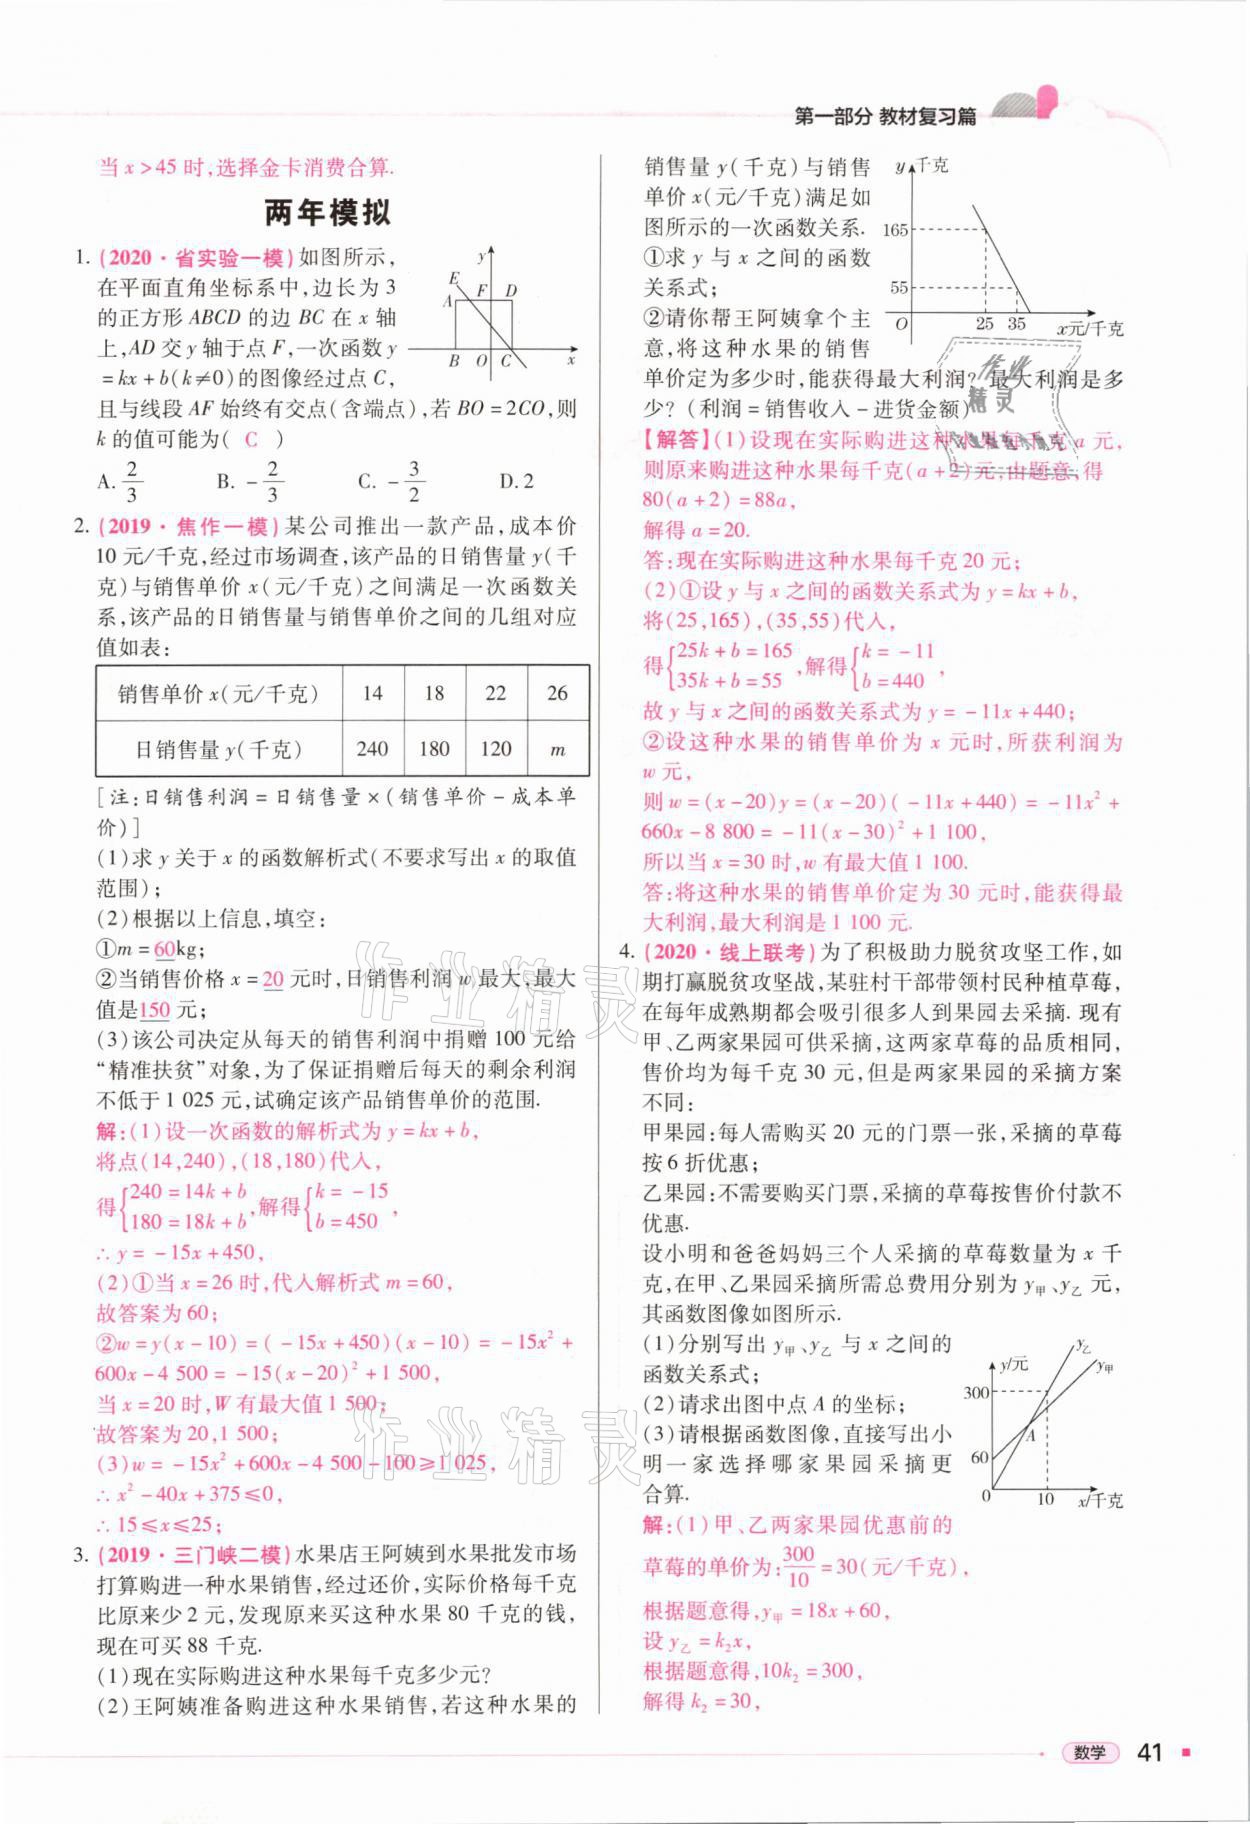 第一部分 教材复习篇
当x>45时,选择金卡消费合算.
两年模拟
1. (2020·省实验一模)如图所示,
在平面直角坐标系中,边长为3
的正方形ABCD的边BC在x轴
上,AD交y轴于点F,一次函数y
=kx+b(k≠0)的图像经过点C,
且与线段AF始终有交点(含端点),若BO=2CO,则
k的值可能为( C )
y
E
F D
A
B O C x
A. 2/3 B. -2/3 C. -3/2 D. 2
2. (2019·焦作一模)某公司推出一款产品,成本价
10元/千克,经过市场调查,该产品的日销售量y(千
克)与销售单价x(元/千克)之间满足一次函数关
系,该产品的日销售量与销售单价之间的几组对应
值如表:
销售单价x(元/千克) 14 18 22 26
日销售量y(千克) 240 180 120 m
[注:日销售利润=日销售量×(销售单价-成本单
价)]
(1)求y关于x的函数解析式(不要求写出x的取值
范围);
(2)根据以上信息,填空:
①m=60kg;
②当销售价格x=20元时,日销售利润w最大,最大
值是150元;
(3)该公司决定从每天的销售利润中捐赠100元给
“精准扶贫”对象,为了保证捐赠后每天的剩余利润
不低于1 025元,试确定该产品销售单价的范围.
解:(1)设一次函数的解析式为y=kx+b,
将点(14,240),(18,180)代入,
得{240=14k+b 180=18k+b,解得{k=-15 b=450,
∴y=-15x+450,
(2)①当x=26时,代入解析式m=60,
故答案为60;
②w=y(x-10)=(-15x+450)(x-10)=-15x²+
600x-4 500=-15(x-20)²+1 500,
当x=20时,W有最大值1 500;
故答案为20,1 500;
(3)w=-15x²+600x-4 500-100≥1 025,
∴x²-40x+375≤0,
∴15≤x≤25;
3. (2019·三门峡二模)水果店王阿姨到水果批发市场
打算购进一种水果销售,经过还价,实际价格每千克
比原来少2元,发现原来买这种水果80千克的钱,
现在可买88千克.
(1)现在实际购进这种水果每千克多少元?
(2)王阿姨准备购进这种水果销售,若这种水果的
销售量y(千克)与销售
单价x(元/千克)满足如
图所示的一次函数关系.
①求y与x之间的函数
关系式;
②请你帮王阿姨拿个主
意,将这种水果的销售
单价定为多少时,能获得最大利润?最大利润是多
少?(利润=销售收入-进货金额)
y 千克
165
55
O 25 35 x元/千克
【解答】(1)设现在实际购进这种水果每千克a元,
则原来购进这种水果每千克(a+2)元,由题意,得
80(a+2)=88a,
解得a=20.
答:现在实际购进这种水果每千克20元;
(2)①设y与x之间的函数关系式为y=kx+b,
将(25,165),(35,55)代入,
得{25k+b=165 35k+b=55,解得{k=-11 b=440,
故y与x之间的函数关系式为y=-11x+440;
②设这种水果的销售单价为x元时,所获利润为
w元,
则w=(x-20)y=(x-20)(-11x+440)=-11x²+
660x-8 800=-11(x-30)²+1 100,
所以当x=30时,w有最大值1 100.
答:将这种水果的销售单价定为30元时,能获得最
大利润,最大利润是1 100元.
4. (2020·线上联考)为了积极助力脱贫攻坚工作,如
期打赢脱贫攻坚战,某驻村干部带领村民种植草莓,
在每年成熟期都会吸引很多人到果园去采摘.现有
甲、乙两家果园可供采摘,这两家草莓的品质相同,
售价均为每千克30元,但是两家果园的采摘方案
不同:
甲果园:每人需购买20元的门票一张,采摘的草莓
按6折优惠;
乙果园:不需要购买门票,采摘的草莓按售价付款不
优惠.
设小明和爸爸妈妈三个人采摘的草莓数量为x千
克,在甲、乙果园采摘所需总费用分别为y甲、y乙元,
其函数图像如图所示.
(1)分别写出y甲、y乙与x之间的
函数关系式;
(2)请求出图中点A的坐标;
(3)请根据函数图像,直接写出小
明一家选择哪家果园采摘更
合算.
y/元 y乙 y甲
300
A
60
0 10 x/千克
解:(1)甲、乙两家果园优惠前的
草莓的单价为:300/10=30(元/千克),
根据题意得,y甲=18x+60,
设y乙=k₂x,
根据题意得,10k₂=300,
解得k₂=30,
作业精灵
作业精灵
作业
精灵
数学 41